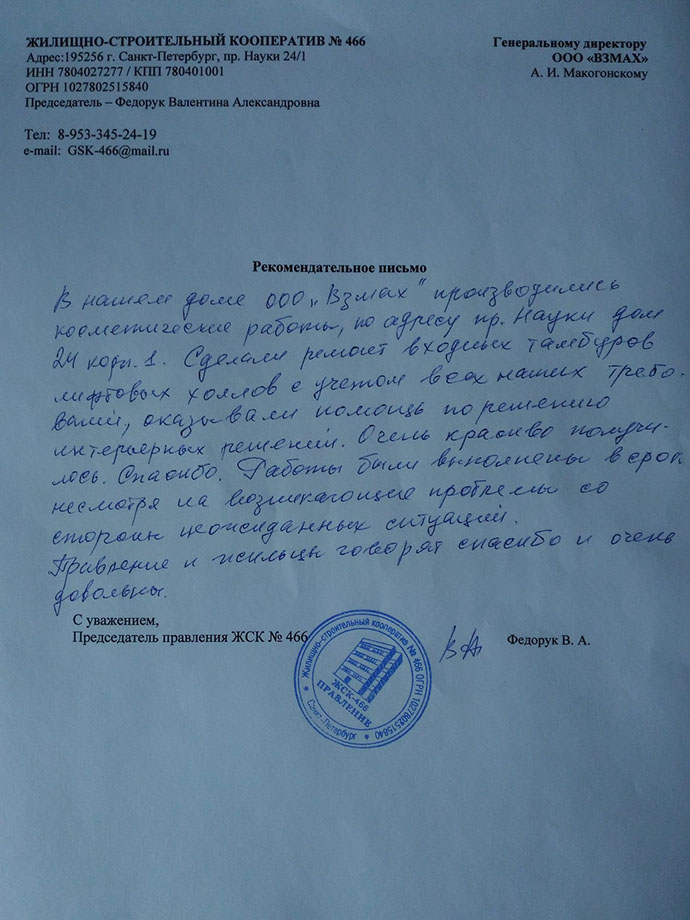 ЖИЛИЩНО-СТРОИТЕЛЬНЫЙ КООПЕРАТИВ № 466
Адрес:195256 г. Санкт-Петербург, пр. Науки 24/1
ИНН 7804027277 / КПП 780401001
ОГРН 1027802515840
Председатель – Федорук Валентина Александровна
Тел: 8-953-345-24-19
e-mail: GSK-466@mail.ru
Генеральному директору
ООО «ВЗМАХ»
А. И. Макогонскому
Рекомендательное письмо
В нашем доме ООО „Взмах" производились
косметические работы, по адресу пр. Науки дом
24 корп. 1. Сделали ремонт входных тамбуров
лифтовых холлов с учетом всех наших требо-
ваний, оказывали помощь по решению
интерьерных решений. Очень красиво получи-
лось. Спасибо. Работы были выполнены в срок
несмотря на возникающие проблемы со
стороны неожиданных ситуаций.
Правление и жильцы говорят спасибо и очень
довольны.
С уважением,
Председатель правления ЖСК № 466
Федорук В. А.
Жилищно-строительный кооператив № 466 ОГРН 1027802515840
ЖСК-466
ПРАВЛЕНИЕ
Санкт-Петербург